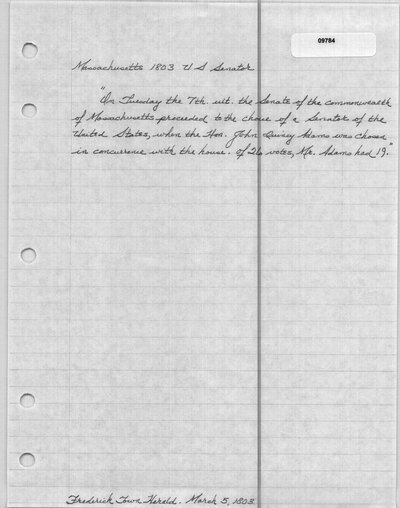 09784
Massachusetts 1803 U S Senator
"On Tuesday the 7th. ult. the Senate of the commonwealth
of Massachusetts proceeded to the choice of a Senator of the
United States, when the Hon. John Quincy Adams was chosen
in concurrence with the house. Of 26 votes, Mr. Adams had 19."
Frederick Town Herald. March 5, 1803